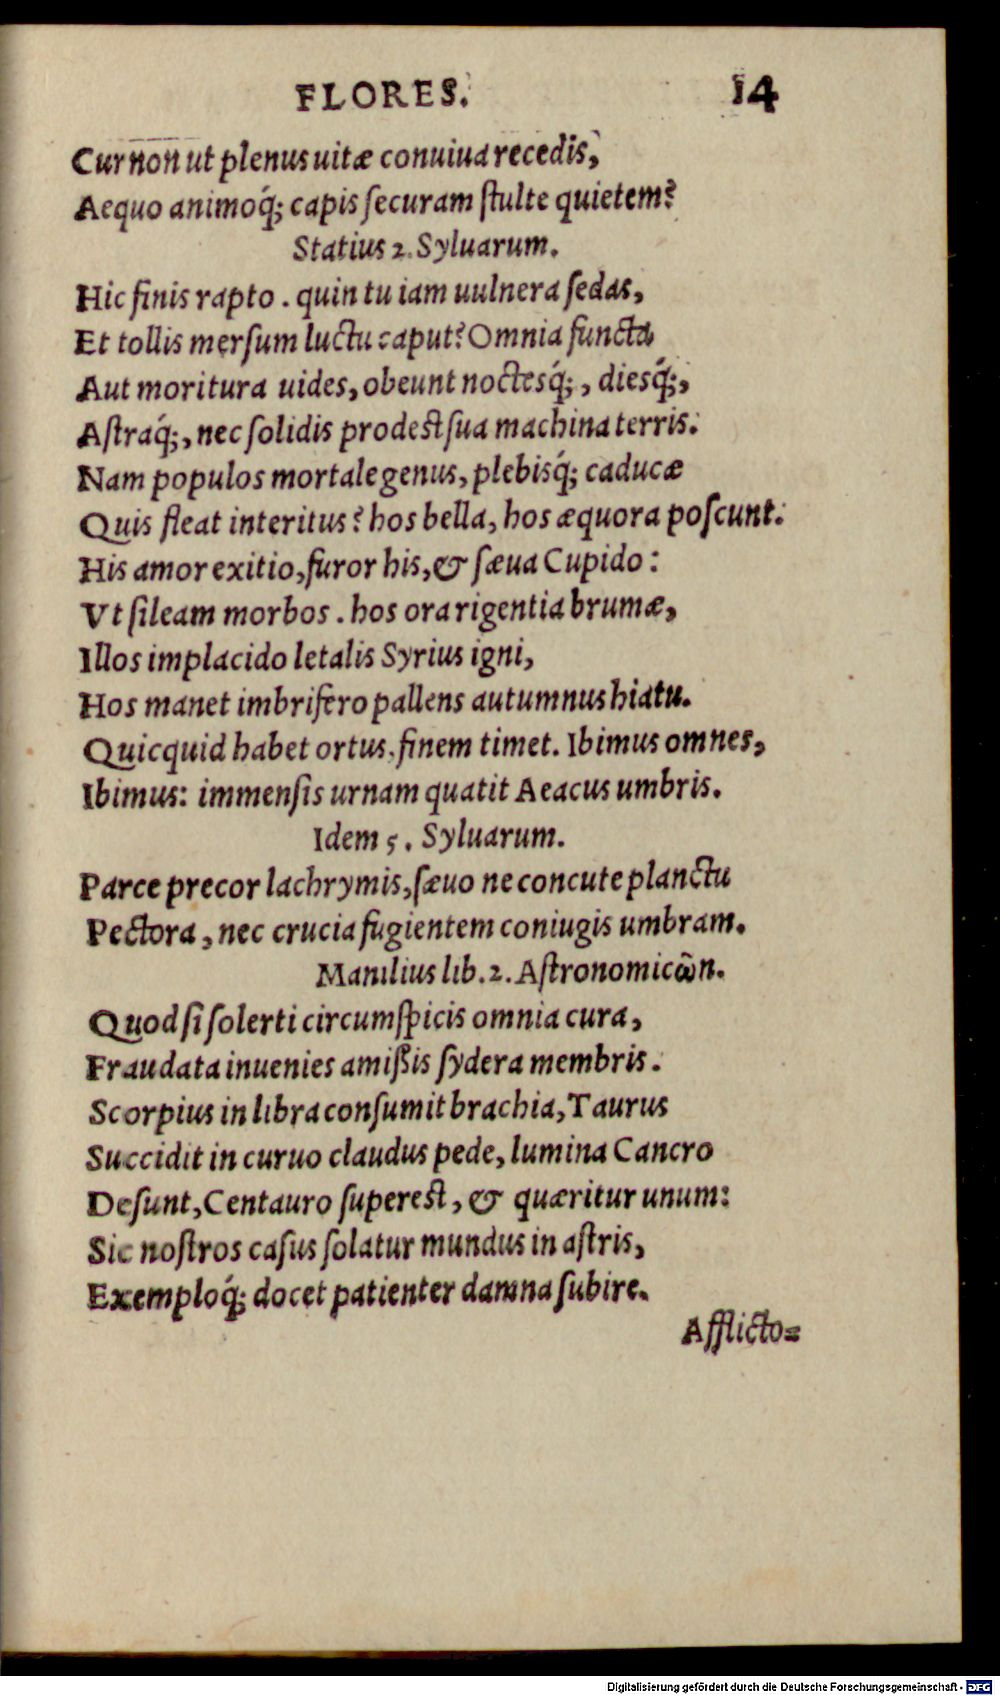 FLORES. 14
Cur non ut plenus uitæ conuiua recedis,
Aequo animoq́; capis ſecuram ſtulte quietem?
Statius 2. Syluarum.
Hic finis rapto. quin tu iam uulnera ſedas,
Et tollis merſum luctu caput? Omnia functa
Aut moritura uides, obeunt noctesq́;, diesq́;,
Aſtraq́;, nec ſolidis prodest ſua machina terris.
Nam populos mortale genus, plebisq́; caducæ
Quis fleat interitus? hos bella, hos æquora poſcunt.
His amor exitio, furor his, & ſæua Cupido:
Vt ſileam morbos. hos ora rigentia brumæ,
Illos implacido letalis Syrius igni,
Hos manet imbrifero pallens autumnus hiatu.
Quicquid habet ortus, finem timet. Ibimus omnes,
Ibimus: immenſis urnam quatit Aeacus umbris.
Idem 5. Syluarum.
Parce precor lachrymis, ſæuo ne concute planctu
Pectora, nec crucia fugientem coniugis umbram.
Manilius lib. 2. Aſtronomicῶn.
Quod ſi ſolerti circumſpicis omnia cura,
Fraudata inuenies amiſsis ſydera membris.
Scorpius in libra conſumit brachia, Taurus
Succidit in curuo claudus pede, lumina Cancro
Deſunt, Centauro ſuperest, & quæritur unum:
Sic noſtros caſus ſolatur mundus in aſtris,
Exemploq́; docet patienter damna ſubire.
Afflicto=
Digitalisierung gefördert durch die Deutsche Forschungsgemeinschaft - DFG